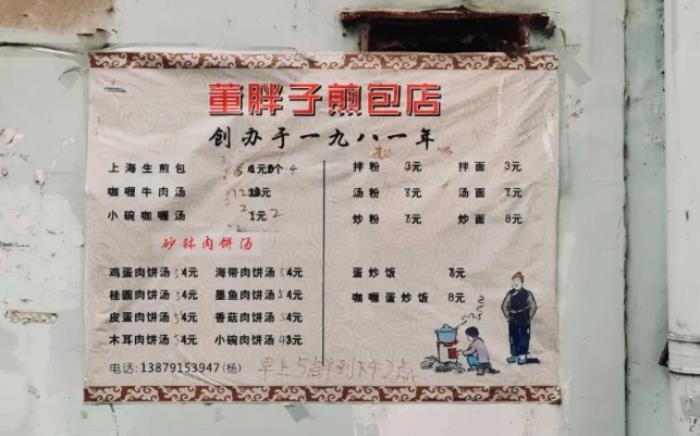 董胖子煎包店
创办于一九八一年
上海生煎包
咖喱牛肉汤
小碗咖喱汤 1元 2
砂钵肉饼汤
鸡蛋肉饼汤 54元 海带肉饼汤 54元
桂圆肉饼汤 54元 墨鱼肉饼汤 54元
皮蛋肉饼汤 54元 香菇肉饼汤 54元
木耳肉饼汤 54元 小碗肉饼汤 43元
电话:13879153947(杨)
早上5点半到下午2点
拌粉 3元 拌面 3元
汤粉 元 汤面 元
炒粉 元 炒面 8元
蛋炒饭 元
咖喱蛋炒饭 8元